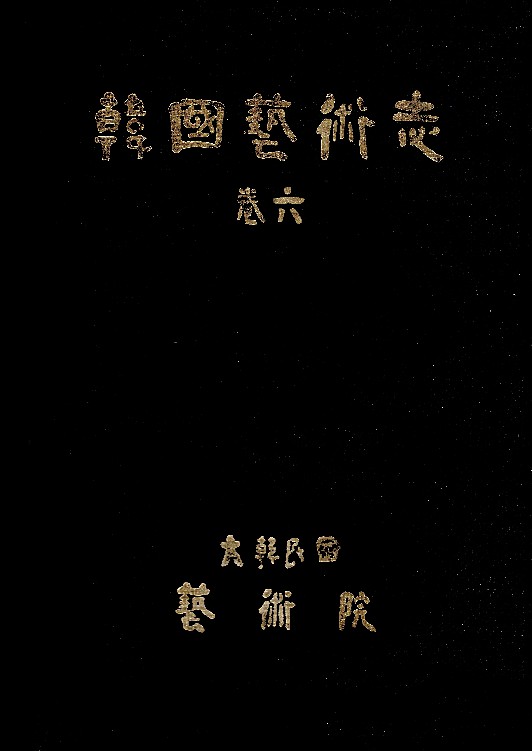 韓國藝術志
卷六
大韓民國
藝術院